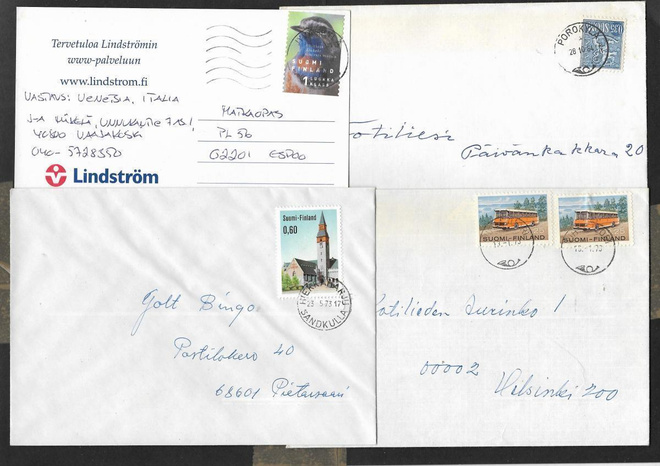 Tervetuloa Lindströmin
www-palveluun
www.lindstrom.fi
VASTAUS: VENETSIA, ITALIA
40-5728350
Lindström
MATKAOPAS
PL 50
02201 ESPOO
SUOMI
FINLAND
1 LUOKKA
KLASS
POROKYLÄ
28 10
Kotiliesi
Päivänkakkara 20
Suomi-Finland
0,60
HARJU
23.5.73 17
SANDKULLA
Golt Bingo
Postilokero 40
68601 Pietarsaari
SUOMI-FINLAND
SUOMI-FINLAND
1.73
1.73
Kotilieden Aurinko 1
00002
Helsinki 200